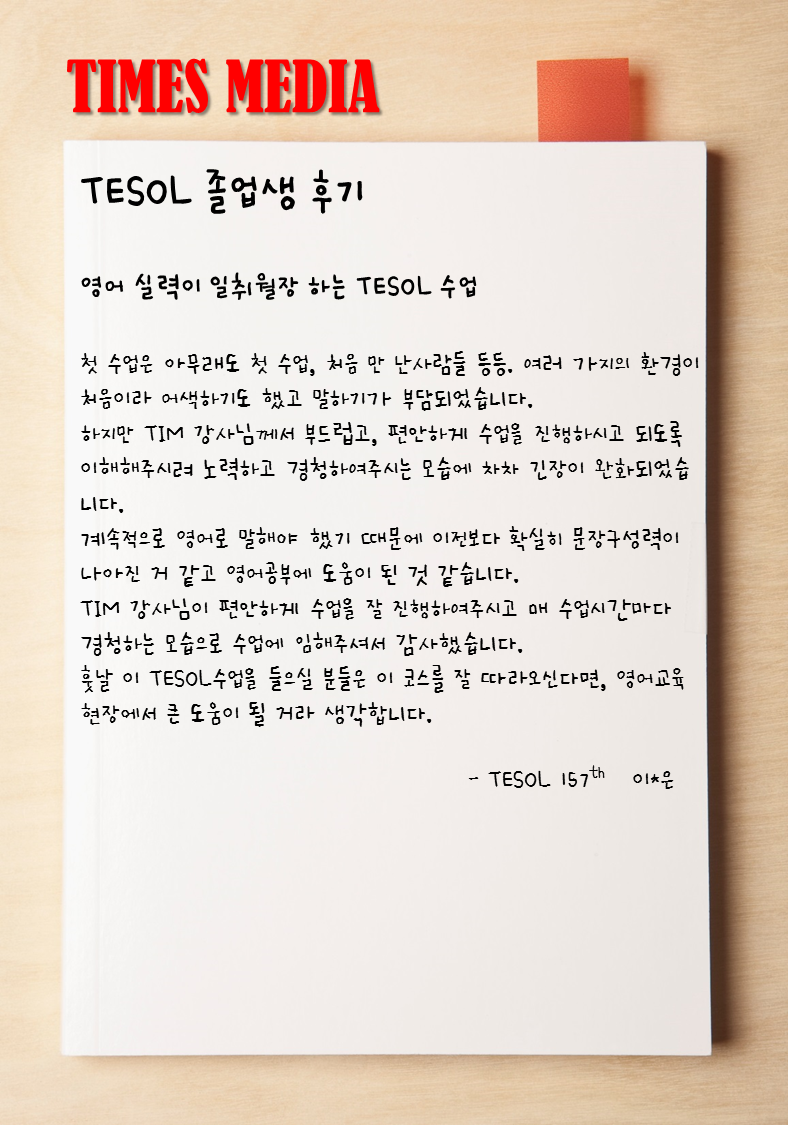 TIMES MEDIA
TESOL 졸업생 후기
영어 실력이 일취월장 하는 TESOL 수업
첫 수업은 아무래도 첫 수업, 처음 만 난사람들 등등. 여러 가지의 환경이
처음이라 어색하기도 했고 말하기가 부담되었습니다.
하지만 TIM 강사님께서 부드럽고, 편안하게 수업을 진행하시고 되도록
이해해주시려 노력하고 경청하여주시는 모습에 차차 긴장이 완화되었습
니다.
계속적으로 영어로 말해야 했기 때문에 이전보다 확실히 문장구성력이
나아진 거 같고 영어공부에 도움이 된 것 같습니다.
TIM 강사님이 편안하게 수업을 잘 진행하여주시고 매 수업시간마다
경청하는 모습으로 수업에 임해주셔서 감사했습니다.
훗날 이 TESOL수업을 들으실 분들은 이 코스를 잘 따라오신다면, 영어교육
현장에서 큰 도움이 될 거라 생각합니다.
- TESOL 157th 이*은